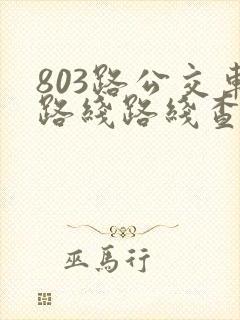 803路公交車
路綫路綫查
巫馬行